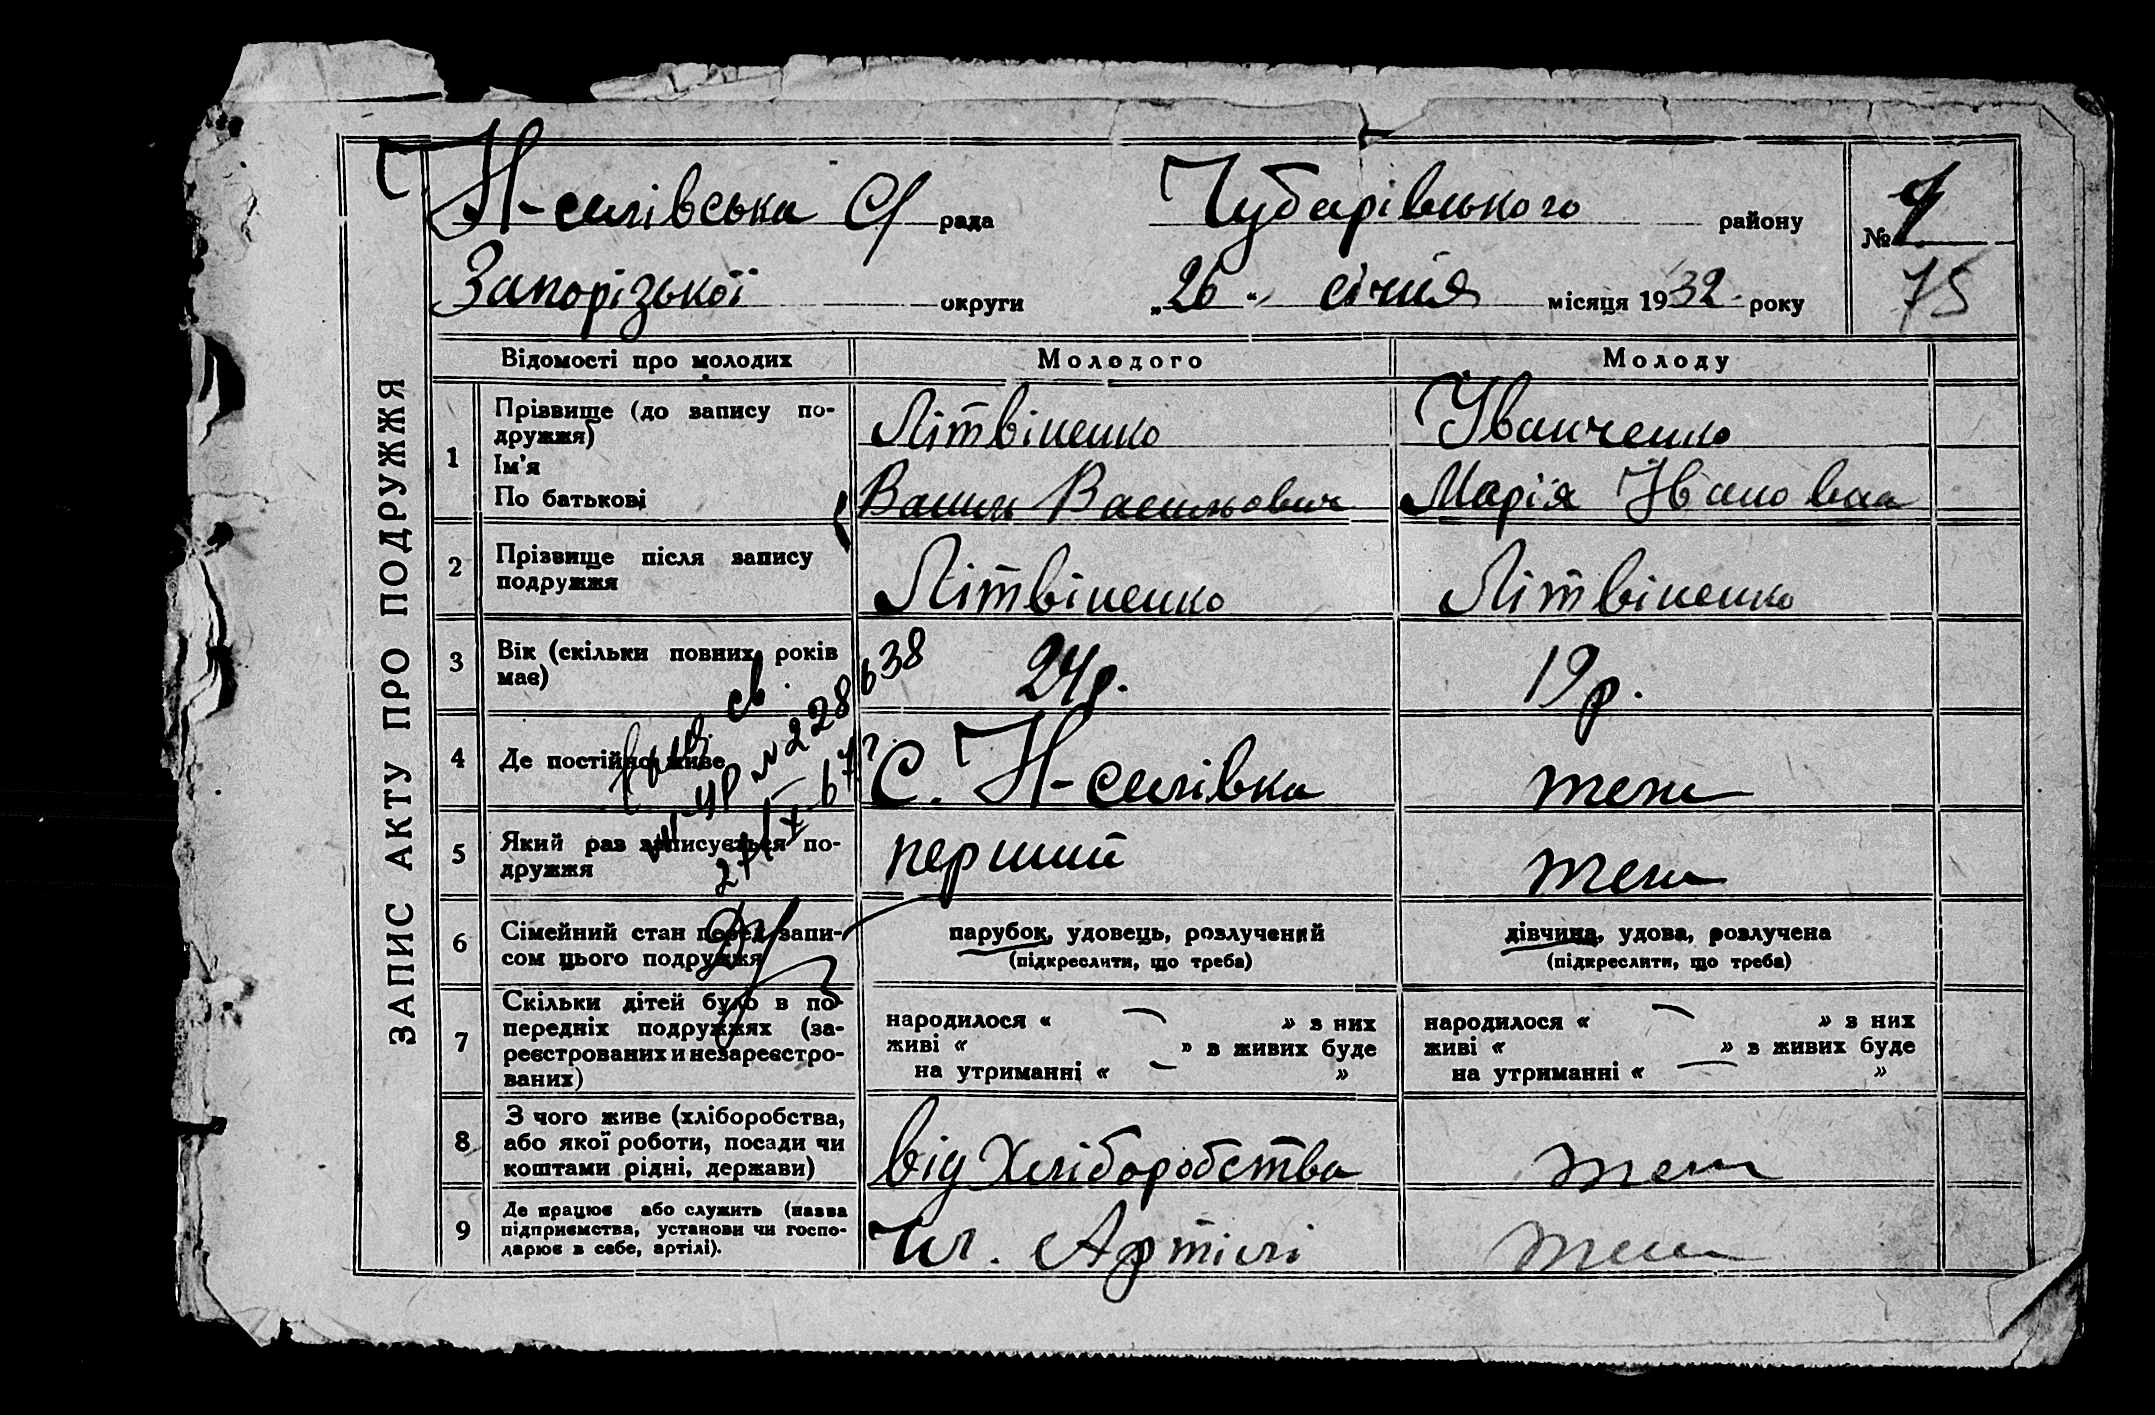 ЗАПИС АКТУ ПРО ПОДРУЖЖЯ
Н-силівська С/ рада Чубарівського району № 7
Запорізької округи „26“ січня місяця 1932 року 75
Відомості про молодих Молодого Молоду
1 Прізвище (до запису по-
дружжя) Літвіненко Іванченко
Ім'я
По батькові Василь Васильович Марія Івановна
2 Прізвище після запису
подружжя Літвіненко Літвіненко
3 Вік (скільки повних років
має) 24р. 19р.
св. 638
№ 228
4 Де постійно живе С. Н-силівка теж
5 Який раз записується по-
дружжя перший теж
6 Сімейний стан перед запи-
сом цього подружжя
парубок, удовець, розлучений дівчина, удова, розлучена
(підкреслити, що треба) (підкреслити, що треба)
7 Скільки дітей було в по-
передніх подружжях (за-
реєстрованих и незареєстро-
ваних)
народилося « » з них народилося « » з них
живі « » з живих буде живі « » з живих буде
на утриманні « » на утриманні « »
8 З чого живе (хліборобства,
або якої роботи, посади чи
коштами рідні, держави) від Хліборобства теж
9 Де працює або служить (назва
підприємства, установи чи госпо-
дарює в себе, артілі). Чл. Артілі теж